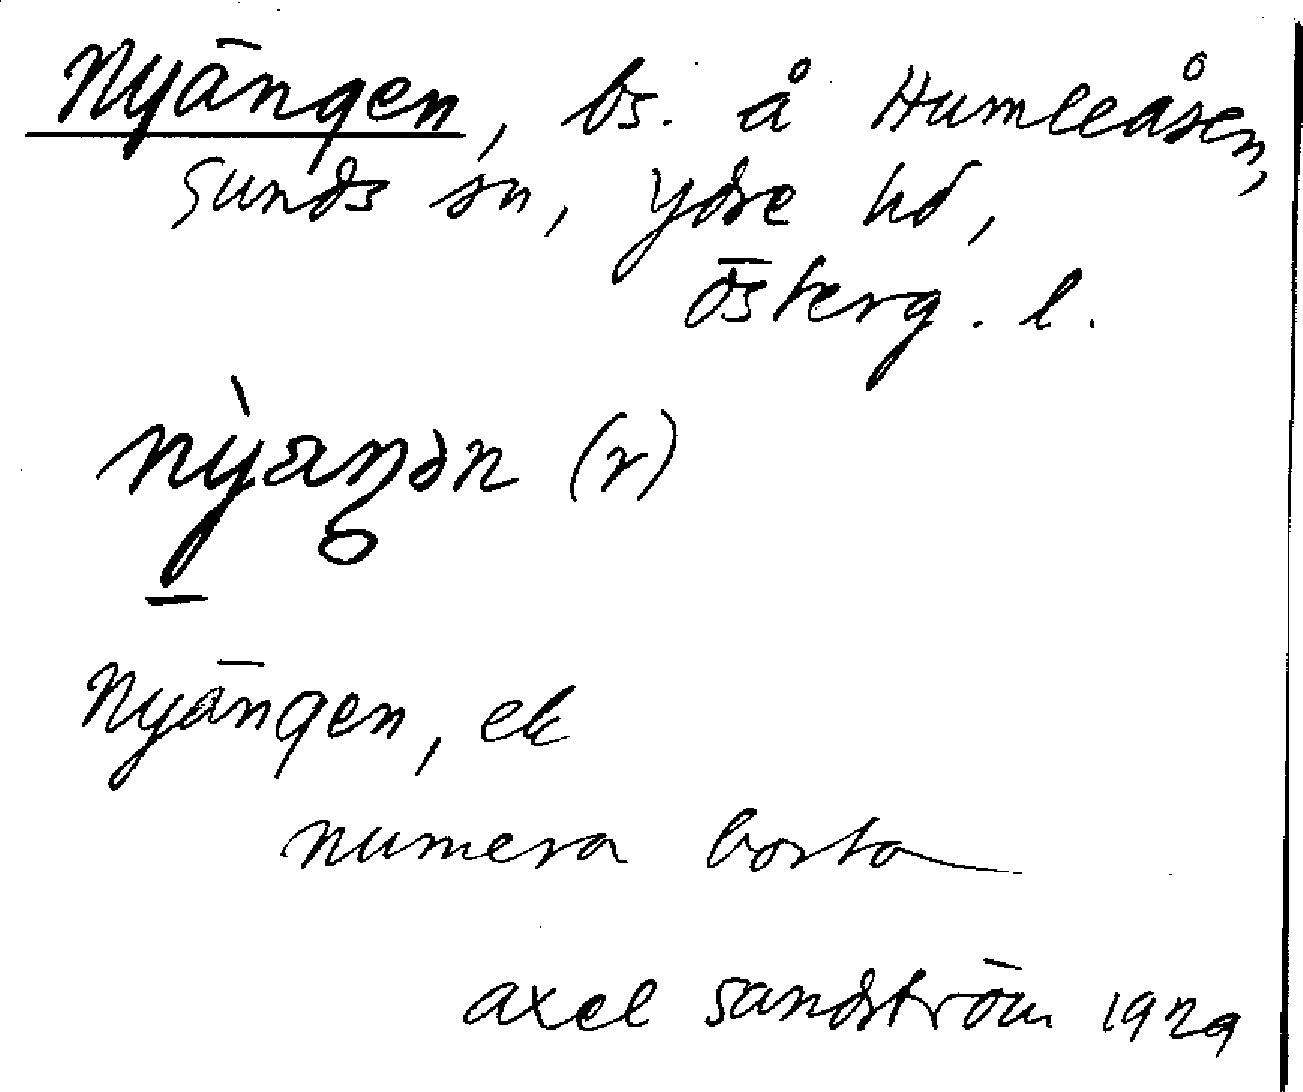 Nyängen, bs. å Humleåsen,
Sunds sn, Ydre hd,
Österg. l.
nỳaŋən (r)
Nyängen, ek
numera borta
Axel Sandström 1929